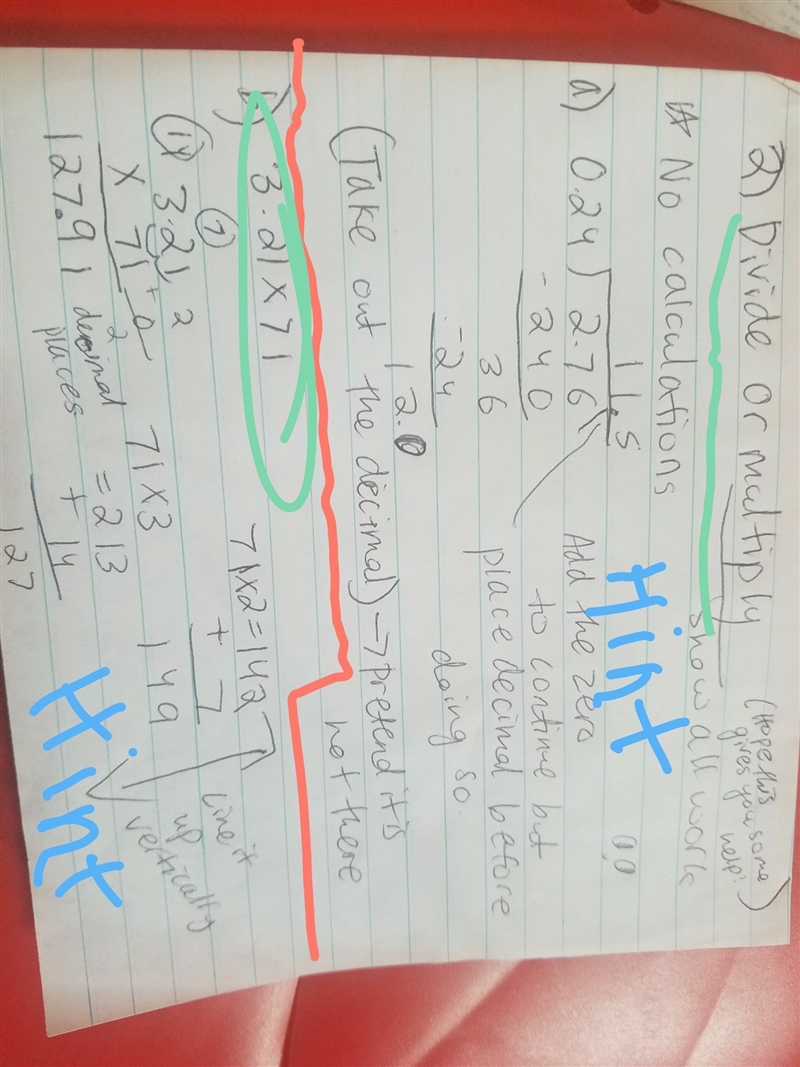 2) Divide or multiply
(Hope this
gives you some
help!)
No calculations
show all work
a) 0.24) 2.76
11.5
- 240
36
- 24
12.0
Hint
Add the zero
to continue but
place decimal before
doing so.
(Take out the decimal) → pretend it is
not there
b) 3.21 x 71
71x2=142
+ 7
149
line it
up
vertically
3.21
x 71
127.91
2
decimal
places
71x3
= 213
+ 14
127
Hint